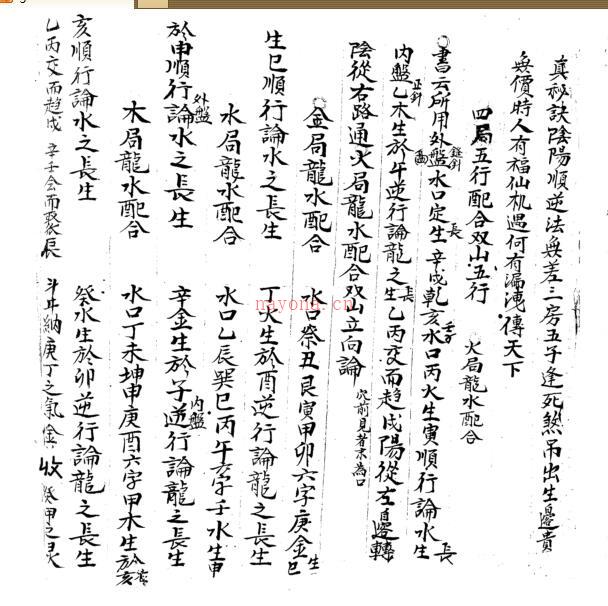 真秘訣陰陽順逆法無差三房五子逢死煞吊出生邊貴
無價時人有福仙机遇何有漏洩傳天下
四局五行配合双山五行 火局龍水配合
書云所用外盤縫針水口定生長辛戌乾亥壬子水口丙火生寅順行論水生長
内盤正針乙木生於午逆行論龍之生長乙丙交而趋戌陽從左邊轉
陰從右路通火局龍水配合双山立向論
金局龍水配合 水口癸丑艮寅甲卯六字庚金生巳
生巳順行論水之長生 丁火生於酉逆行論龍之長生
水局龍水配合 水口乙辰巽巳丙午六字壬水生申
於申順行論外盤水之長生 辛金生於子逆行内盤論龍之長生
木局龍水配合 水口丁未坤申庚酉六字甲木生於亥
亥順行論水之長生 癸水生於卯逆行論龍之長生
乙丙交而趋戌 辛壬会而聚辰 斗牛納庚丁之氣 金 收癸甲之灵
mayona.cn